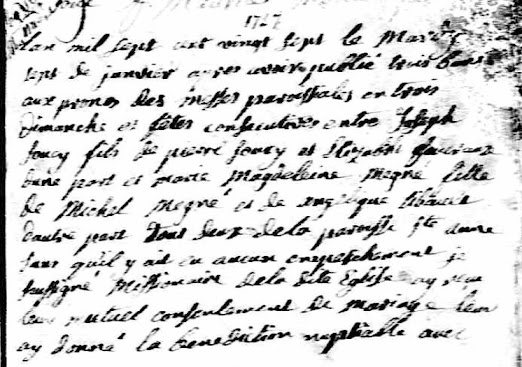 1727
Lan mil sept cent vingt sept le Mardy
sept de janvier apres avoir publié trois bans
aux prones des Messes paroissiales en trois
Dimanche et fêtes consecutives entre Joseph
fils de pierre et Elizabet
dune part et marie Magdeleine Megré fille
de Michel Megré et de angelique
dautre part Tous deux de la paroisse Ste anne
sans qu'il y ait eu aucun empeschement je
soussigné Missionaire de la dite Eglise ay reçu
leur mutuel consentement de mariage leur
ay donné la benediction nuptialle avec